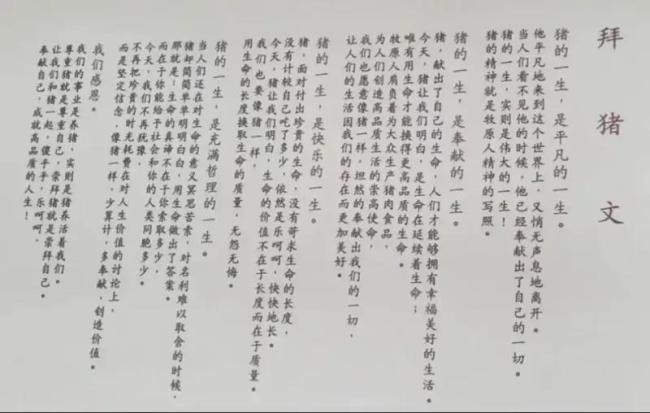 拜猪文
猪的一生,是平凡的一生。
他平凡地来到这个世界上,又悄无声息地离开。
当人们看不见他的时候,他已经奉献出了自己的一切。
猪的一生,实则是伟大的一生!
猪的精神就是牧原人精神的写照。
猪的一生,是奉献的一生。
猪,献出了自己的生命,人们才能够拥有幸福美好的生活。
今天,猪让我们明白,是生命在延续着生命;
唯有用生命才能换得更高品质的生命。
牧原人肩负着为大众生产猪肉食品,
为人们创造高品质生活的崇高使命,
我们也愿意像猪一样,坦然的奉献出我们的一切,
让人们的生活因我们的存在而更加美好。
猪的一生,是快乐的一生。
猪,面对付出珍贵的生命,没有苛求生命的长度,
没有计较自己吃了多少,依然是乐呵呵,快快地长。
今天,猪让我们明白,生命的价值不在于长度而在于质量。
我们也要像猪一样,
用生命的长度换取生命的质量,无怨无悔。
猪的一生,是充满哲理的一生。
当人们还在对生命的意义冥思苦索,对名利难以取舍的时候,
猪却简简单单明明白白,用生命做出了答案。
那就是:生命的真谛不在于你索取多少,
而在于你能给予社会和你的人类同胞多少。
今天,我们不再犹豫,
不再把珍贵的时光耗费在对人生价值的讨论上,
而是坚定信念,像猪一样,少算计,多奉献,创造价值。
我们感恩。
我们的事业是养猪,实则是猪养活着我们。
尊重猪就是尊重自己,崇拜猪就是崇拜自己。
让我们和猪一起,傻乎乎,乐呵呵,
奉献自己,成就高品质的人生!